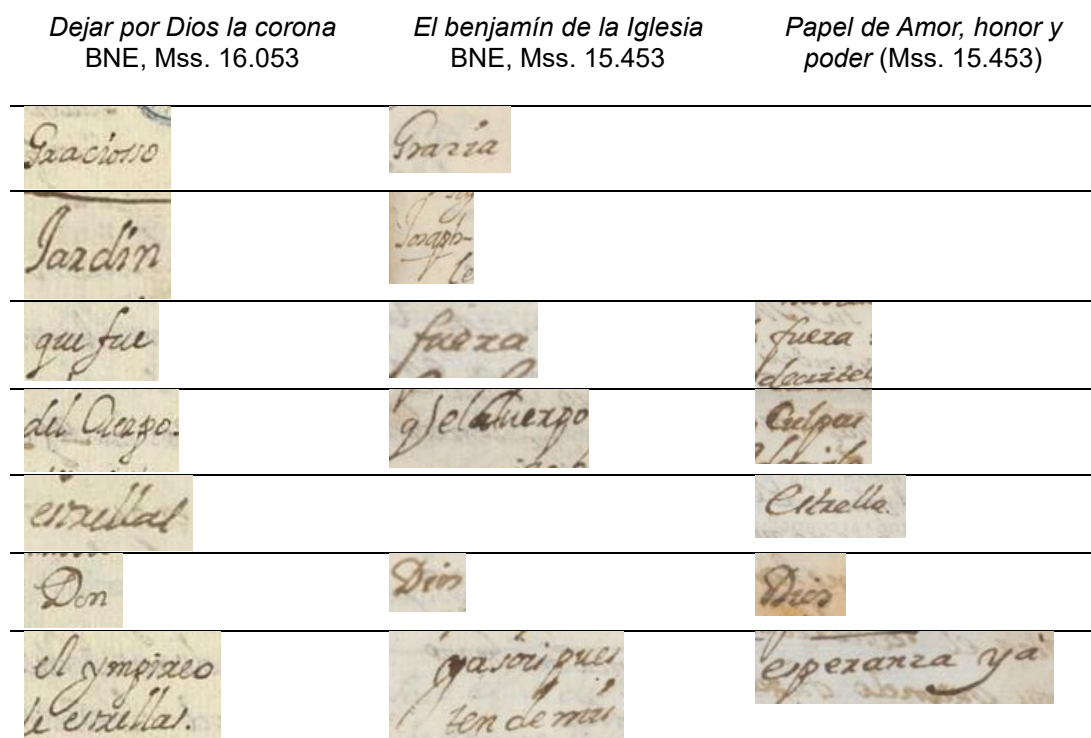 Dejar por Dios la corona
BNE, Mss. 16.053
El benjamín de la Iglesia
BNE, Mss. 15.453
Papel de Amor, honor y
poder (Mss. 15.453)
Graciosso
Grazia
Jardin
Joseph
que fue
fuerza
fuera
del Cuerpo.
q del Cuerpo
Culpas
estrellas
Estrella.
Don
Dios
Dios
el ympireo
de estrellas.
ya sois pues
ten de mis
esperanza yá